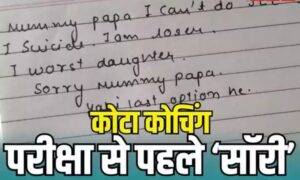 Mummy papa I can't do
I suicide. I am loser.
I worst daughter.
Sorry Mummy papa.
Yahi last option he.
कोटा कोचिंग
परीक्षा से पहले 'सॉरी'